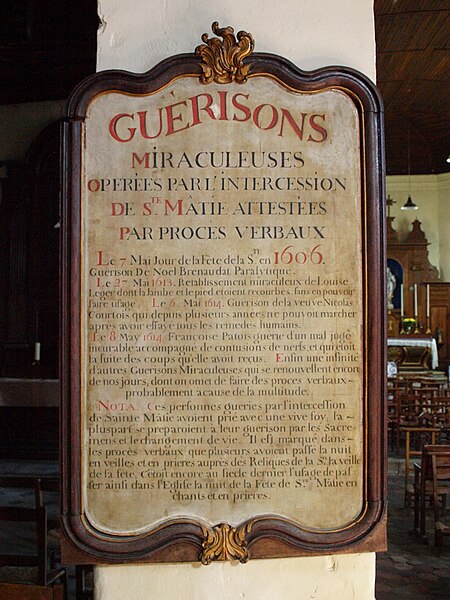 GUÉRISONS
MIRACULEUSES
OPEREES PAR L'INTERCESSION
DE S.TE MÂTIE ATTESTÉES
PAR PROCES VERBAUX
Le 7 Mai Jour de la Fête de la S.TE en 1606.
Guerison De Noël Brenaudat Paralytique.
Le 27. Mai 1613. Retablissement miraculeux de Louise
Leger dont la Jambe et le pied etoient recourbes. sans en pouvoir
faire usage. Le 6. Mai 1614. Guerison de la veuve Nicolas
Courtois qui depuis plusieurs années ne pouvoit marcher
après avoir essayé tous les remedes humains.
Le 8 May 1614. Françoise Patois guerie d'un mal jugé
meurable accompagné de contusions de nerfs et qui etoit
la suite des coups qu'elle avoit recus. Enfin une infinité
d'autres Guerisons Miraculeuses qui se renouvellent encor
de nos jours, dont on omet de faire des procès verbaux
probablement a cause de la multitude.
NOTA. Ces personnes gueries par l'intercession
de Sainte Mâtie avoient prié avec une vive foy, la
pluspart se preparoient à leur guerison par les Sacre-
mens et le changement de vie. Il est marqué dans
les procès verbaux que plusieurs avoient passé la nuit
en veilles et en prieres aupres des Reliques de la S.te la veille
de sa fête. C'etoit encore au siecle dernier l'usage de pas-
ser ainsi dans l'Eglise la nuit de la Fête de S.te Mâtie en
chants et en prieres.